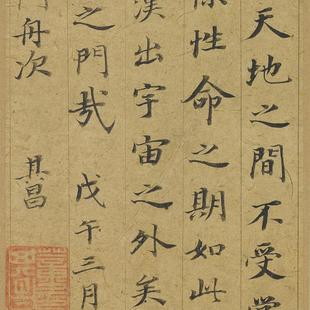 天地之間不受當
保性命之期如此
漢出宇宙之外矣
之門哉 戊午三月
舟次 其昌